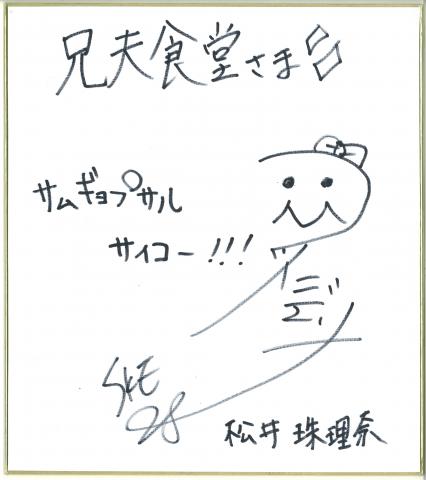 兄夫食堂さま
サムギョプサル
サイコー!!!
SKE
48
松井 珠理奈